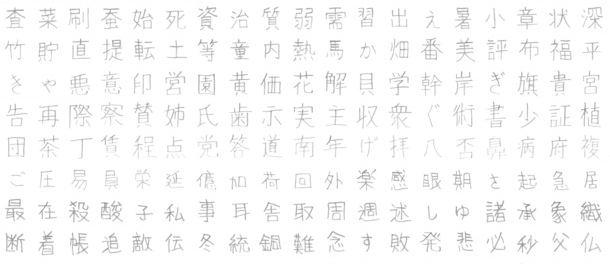 査菜刷蚕始死資治質弱需習出え暑小章状深
竹貯直提転土等童内熱馬か畑番美評布福平
きゃ悪意印営園黄価花解貝学幹岸ぎ旗貴宮
告再際察賛姉氏歯示実主収衆ぐ術書少証植
団茶丁賃程点党答道南年げ拝八否鼻病府複
ご圧易員栄延億加荷回外楽感眼期を起急居
最在殺酸子私事耳舎取周週述しゆ諸承象織
断着帳追敵伝冬統銅難念す敗発悲必秒父仏